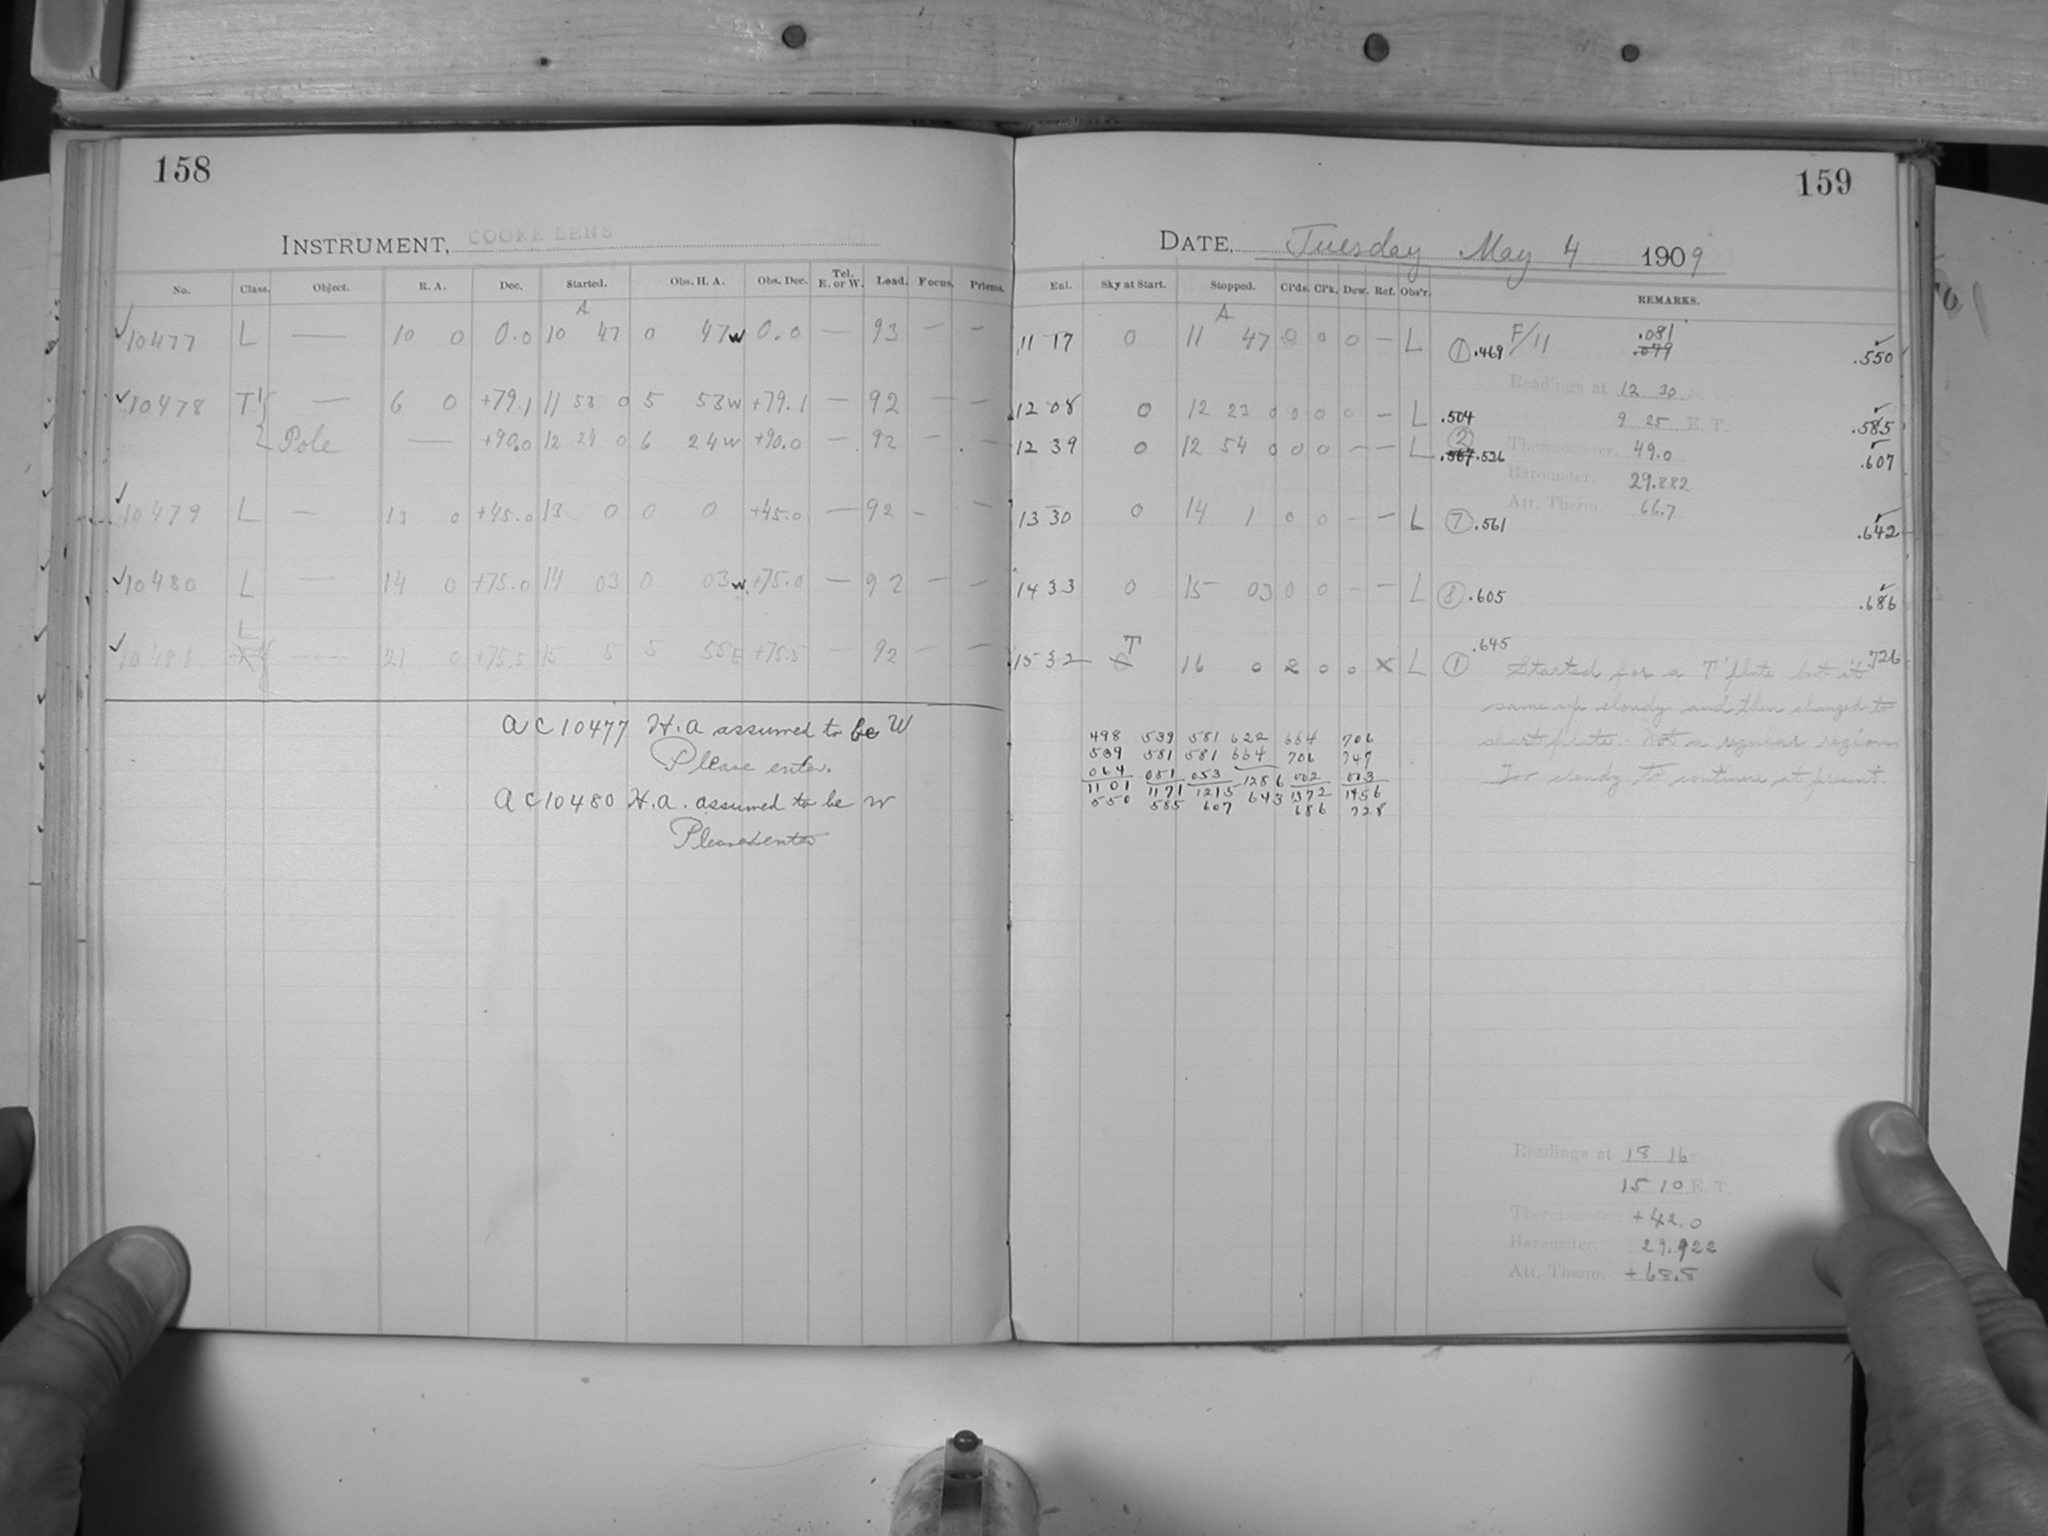 158
INSTRUMENT, COOKE LENS
No. Class. Object. R. A. Dec. Started. Obs. H. A. Obs. Dec. Tel. E. or W. Load. Focus. Prisms.
A
✓ 10477 L — 10 0 0.0 10 47 0 47 w 0.0 — 93 — —
✓ 10478 T' — 6 0 +79.1 11 53 0 5 53 w +79.1 — 92 — —
Pole — +90.0 12 24 0 6 24 w +90.0 — 92 — —
✓ 10479 L — 13 0 +45.0 13 0 0 0 +45.0 — 92 — —
✓ 10480 L — 14 0 +75.0 14 03 0 03 w +75.0 — 92 — —
L
✓ 10481 — 21 0 +75.5 15 5 5 55 E +75.5 — 92 — —
AC 10477 H.A assumed to be W
Please enter.
AC 10480 H.A. assumed to be W
Please enter
159
DATE, Tuesday May 4 1909
Enl. Sky at Start. Stopped. Cl'ds. Cl'k. Dew. Ref. Obs'r. REMARKS.
A
11 17 0 11 47 0 0 0 — L ① .469 F/11 .081 .550
.079
Readings at 12 30
12 08 0 12 23 0 0 0 0 — L .504 9 25 E. T. .585
12 39 0 12 54 0 0 0 — — L ② .567 .526 Thermometer. 49.0 .607
Barometer. 29.882
Att. Therm 66.7
13 30 0 14 1 0 0 — — L ⑦ .561 .642
14 33 0 15 03 0 0 — — L ⑧ .605 .686
T .645
15 32 0 16 0 2 0 0 X L ① .726
Started for a T' plate but it
came up cloudy and then changed to
short plate. Not a regular region
Too cloudy to continue at present.
498 539 581 622 664 706
539 581 581 664 706 747
064 051 053 1286 002 003
1101 1171 1215 643 1372 1456
550 585 607 686 728
Readings at 18 16
15 10 E. T.
Thermometer. +42.0
Barometer. 29.922
Att. Therm. +68.8